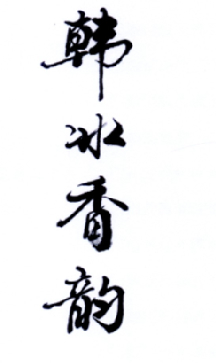 韩冰香韵